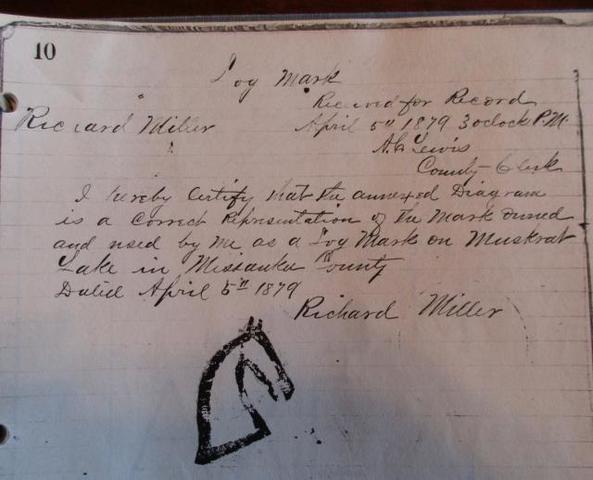 10
Log Mark
Received for Record
Richard Miller April 5th 1879 3 oclock P.M.
A.C. Lewis
County Clerk
I hereby Certify that the annexed Diagram
is a Correct Representation of the Mark owned
and used by me as a Log Mark on Muskrat
Lake in Missauke County
Dated April 5th 1879
Richard Miller